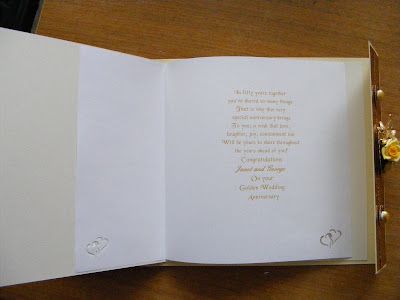 In fifty years together
you've shared so many things
That is why this very
special anniversary brings
To you, a wish that love,
laughter, joy, contentment too
Will be yours to share throughout
the years ahead of you!
Congratulations
Janet and George
On your
Golden Wedding
Anniversary